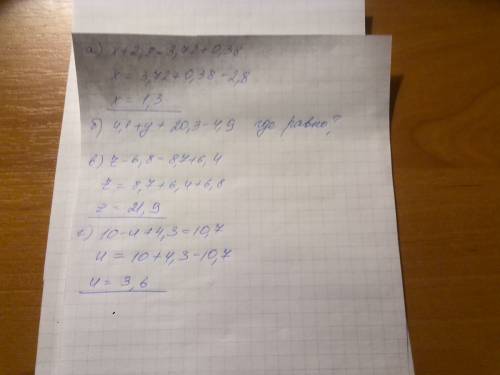 а) x+2,8=3,72+0,38
x = 3,72+0,38-2,8
x = 1,3
б) 4,1+y+20,3-4,9 где равно?
в) z-6,8=8,7+6,4
z = 8,7+6,4+6,8
z = 21,9
г) 10-u+4,3=10,7
u = 10+4,3-10,7
u = 3,6